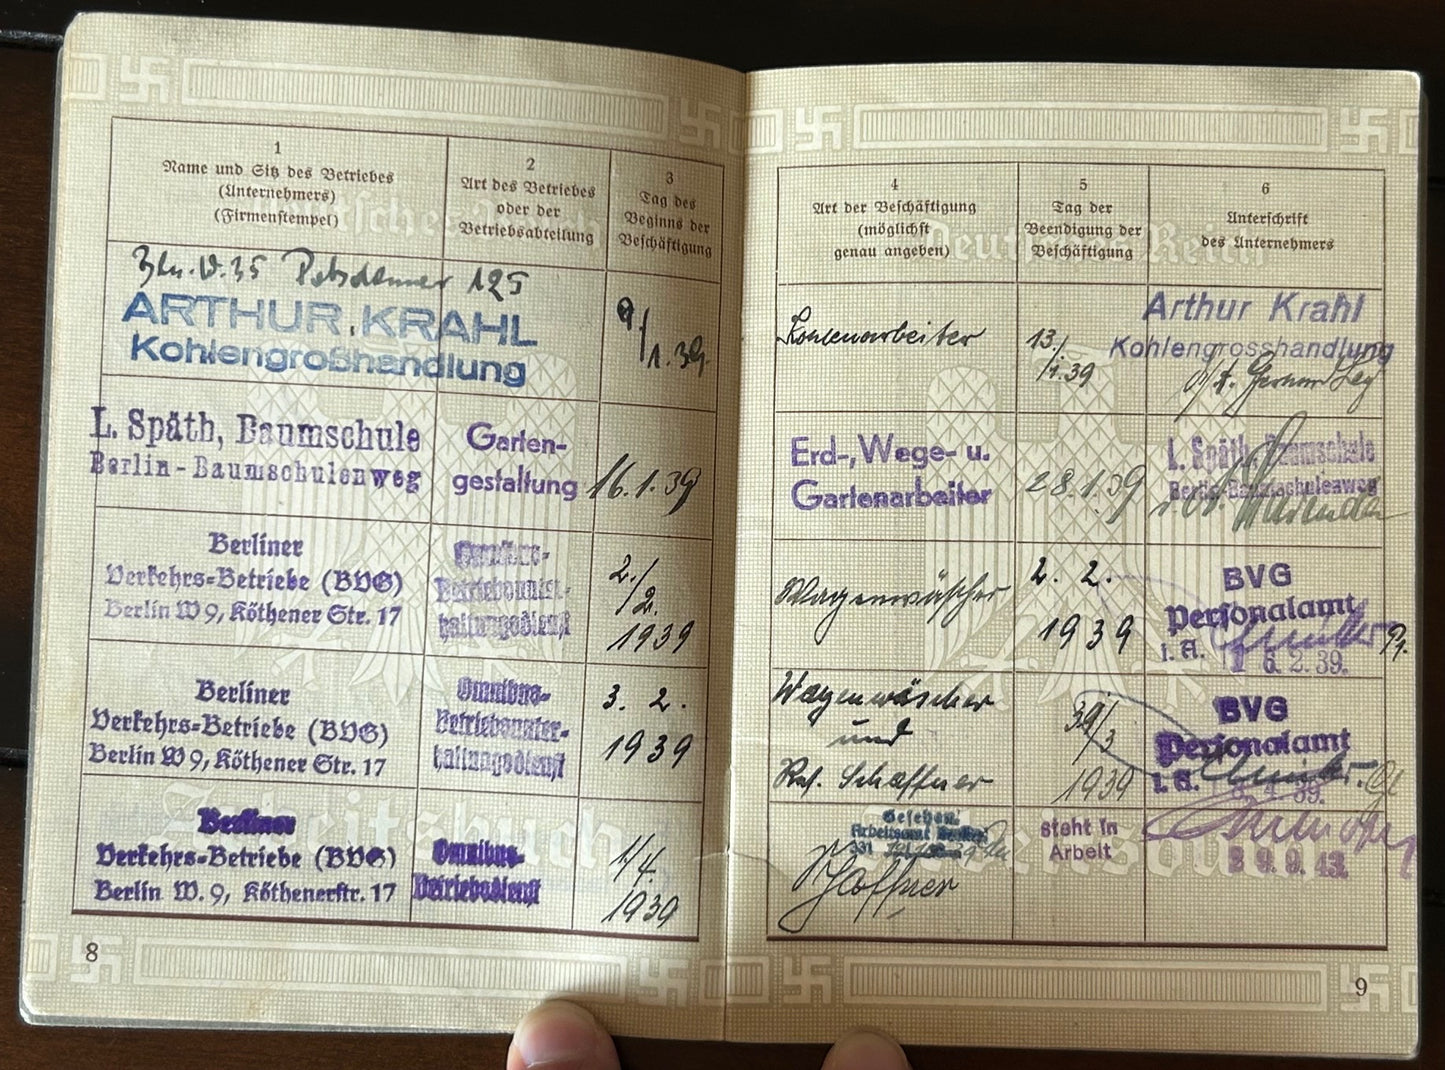 1
Name und Sitz des Betriebes
(Unternehmers)
(Firmenstempel)
2
Art des Betriebes
oder der
Betriebsabteilung
3
Tag des
Beginns der
Beschäftigung
Bln. W. 35 Potsdamer 125
ARTHUR KRAHL
Kohlengroßhandlung
9/1.39.
L. Späth, Baumschule
Berlin-Baumschulenweg
Garten-
gestaltung
16.1.39
Berliner
Verkehrs-Betriebe (BVG)
Berlin W 9, Köthener Str. 17
Omnibus-
Betriebsunter-
haltungsdienst
2./2.
1939
Berliner
Verkehrs-Betriebe (BVG)
Berlin W 9, Köthener Str. 17
Omnibus-
Betriebsunter-
haltungsdienst
3. 2.
1939
Berliner
Verkehrs-Betriebe (BVG)
Berlin W. 9, Köthenerstr. 17
Omnibus-
Betriebsdienst
1/4.
1939
Arbeitsbuch
8
4
Art der Beschäftigung
(möglichst
genau angeben)
5
Tag der
Beendigung der
Beschäftigung
6
Unterschrift
des Unternehmers
Deutsches Reich
Kohlenarbeiter
13./1.39
Arthur Krahl
Kohlengrosshandlung
Erd-, Wege- u.
Gartenarbeiter
28.1.39
L. Späth, Baumschule
Berlin-Baumschulenweg
Wagenwäscher
2. 2.
1939
BVG
Personalamt
I. A.
6.2.39.
Wagenwäscher
und
Res. Schaffner
31/3
1939
BVG
Personalamt
I. A.
4.39.
Gesehen:
Arbeitsamt Berlin
331
Schaffner
steht in
Arbeit
9.9.43
9